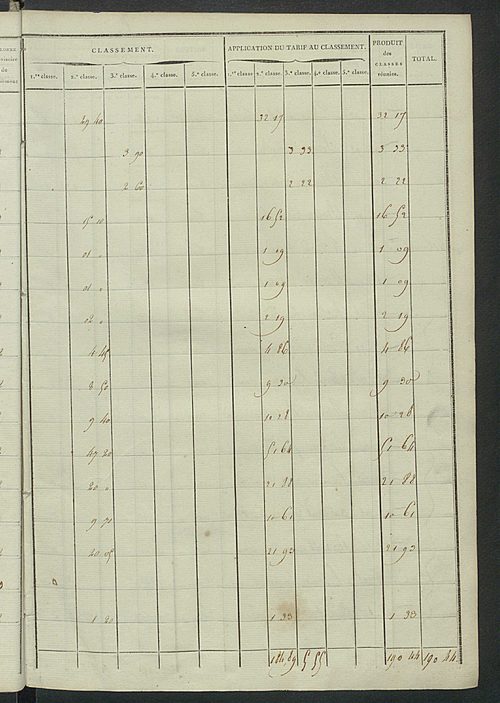 CLASSEMENT. APPLICATION DU TARIF AU CLASSEMENT. PRODUIT des CLASSES réunies. TOTAL.
1.re classe. 2.e classe. 3.e classe. 4.e classe. 5.e classe. 1.re classe 2.e classe. 3.e classe. 4.e classe. 5.e classe.
32 17 32 17
3 90 3 33 3 33
2 60 2 22 2 22
15 10 16 52 16 52
01 " 1 09 1 09
01 " 1 09 1 09
02 " 2 19 2 19
4 45 4 86 4 86
8 50 9 30 9 30
9 40 10 28 10 28
47 20 51 64 51 64
20 " 21 88 21 88
9 70 10 61 10 61
21 92 21 92
0
1 20 1 33 1 33
184 89 5 55 190 44 190 44